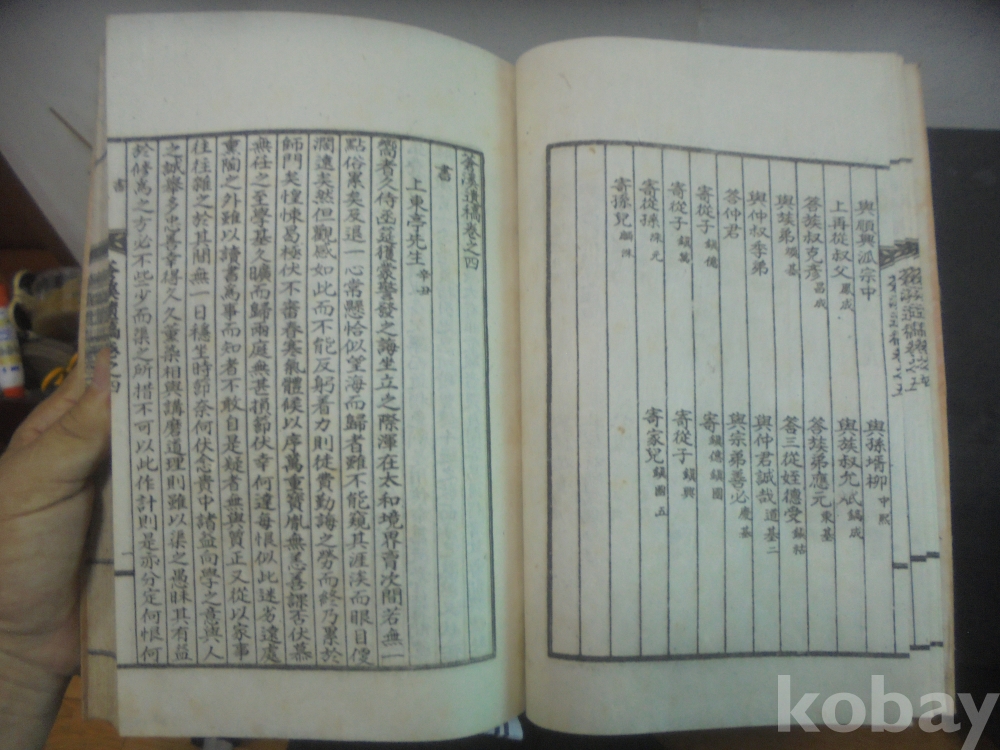 與順興派宗中
與孫壻柳中熙
上再從叔父鳳成
與族叔允武鎭成
答族叔克彥昌成
答族弟應元東基
與族弟順基
答三從姪德受鎭祜
與仲叔季弟
與仲君誠哉道基二
答仲君
與宗弟善必慶基
寄從子鎭億
寄鎭億鎭國
寄從子鎭萬
寄從子鎭興
寄從孫洙元
寄家兒鎭國五
寄孫兒
遺稿卷之四
書
上東亭先生辛丑
嚮者久侍函筵獲蒙警發之誨坐立之際渾在太和境界賣次間若無一
點俗累矣及退一心常懸恰似望海而歸者雖不能窺其涯涘而眼目便
濶遠矣然但觀感如此而不能反躬着力則徒費勤誨之勞而終乃累於
師門矣惶悚曷極伏不審春寒氣體候以序萬重寶胤無恙善課否伏慕
無任之至學基久曠而歸兩庭無甚損節伏幸何達每恨似此迷劣還處
重陶之外雖以讀書爲事而知者不敢自是疑者無與質正又從以家事
往往雜之於其間無一日穩坐時節奈何伏念貴中諸益向學之意與人
之誠擧多忠善幸得久久薰染相與講磨道理則雖以渠之愚昧其有益
於修爲之方必不些少而渠之所措不可以此作計則是亦分定何恨何
書
一
kobay